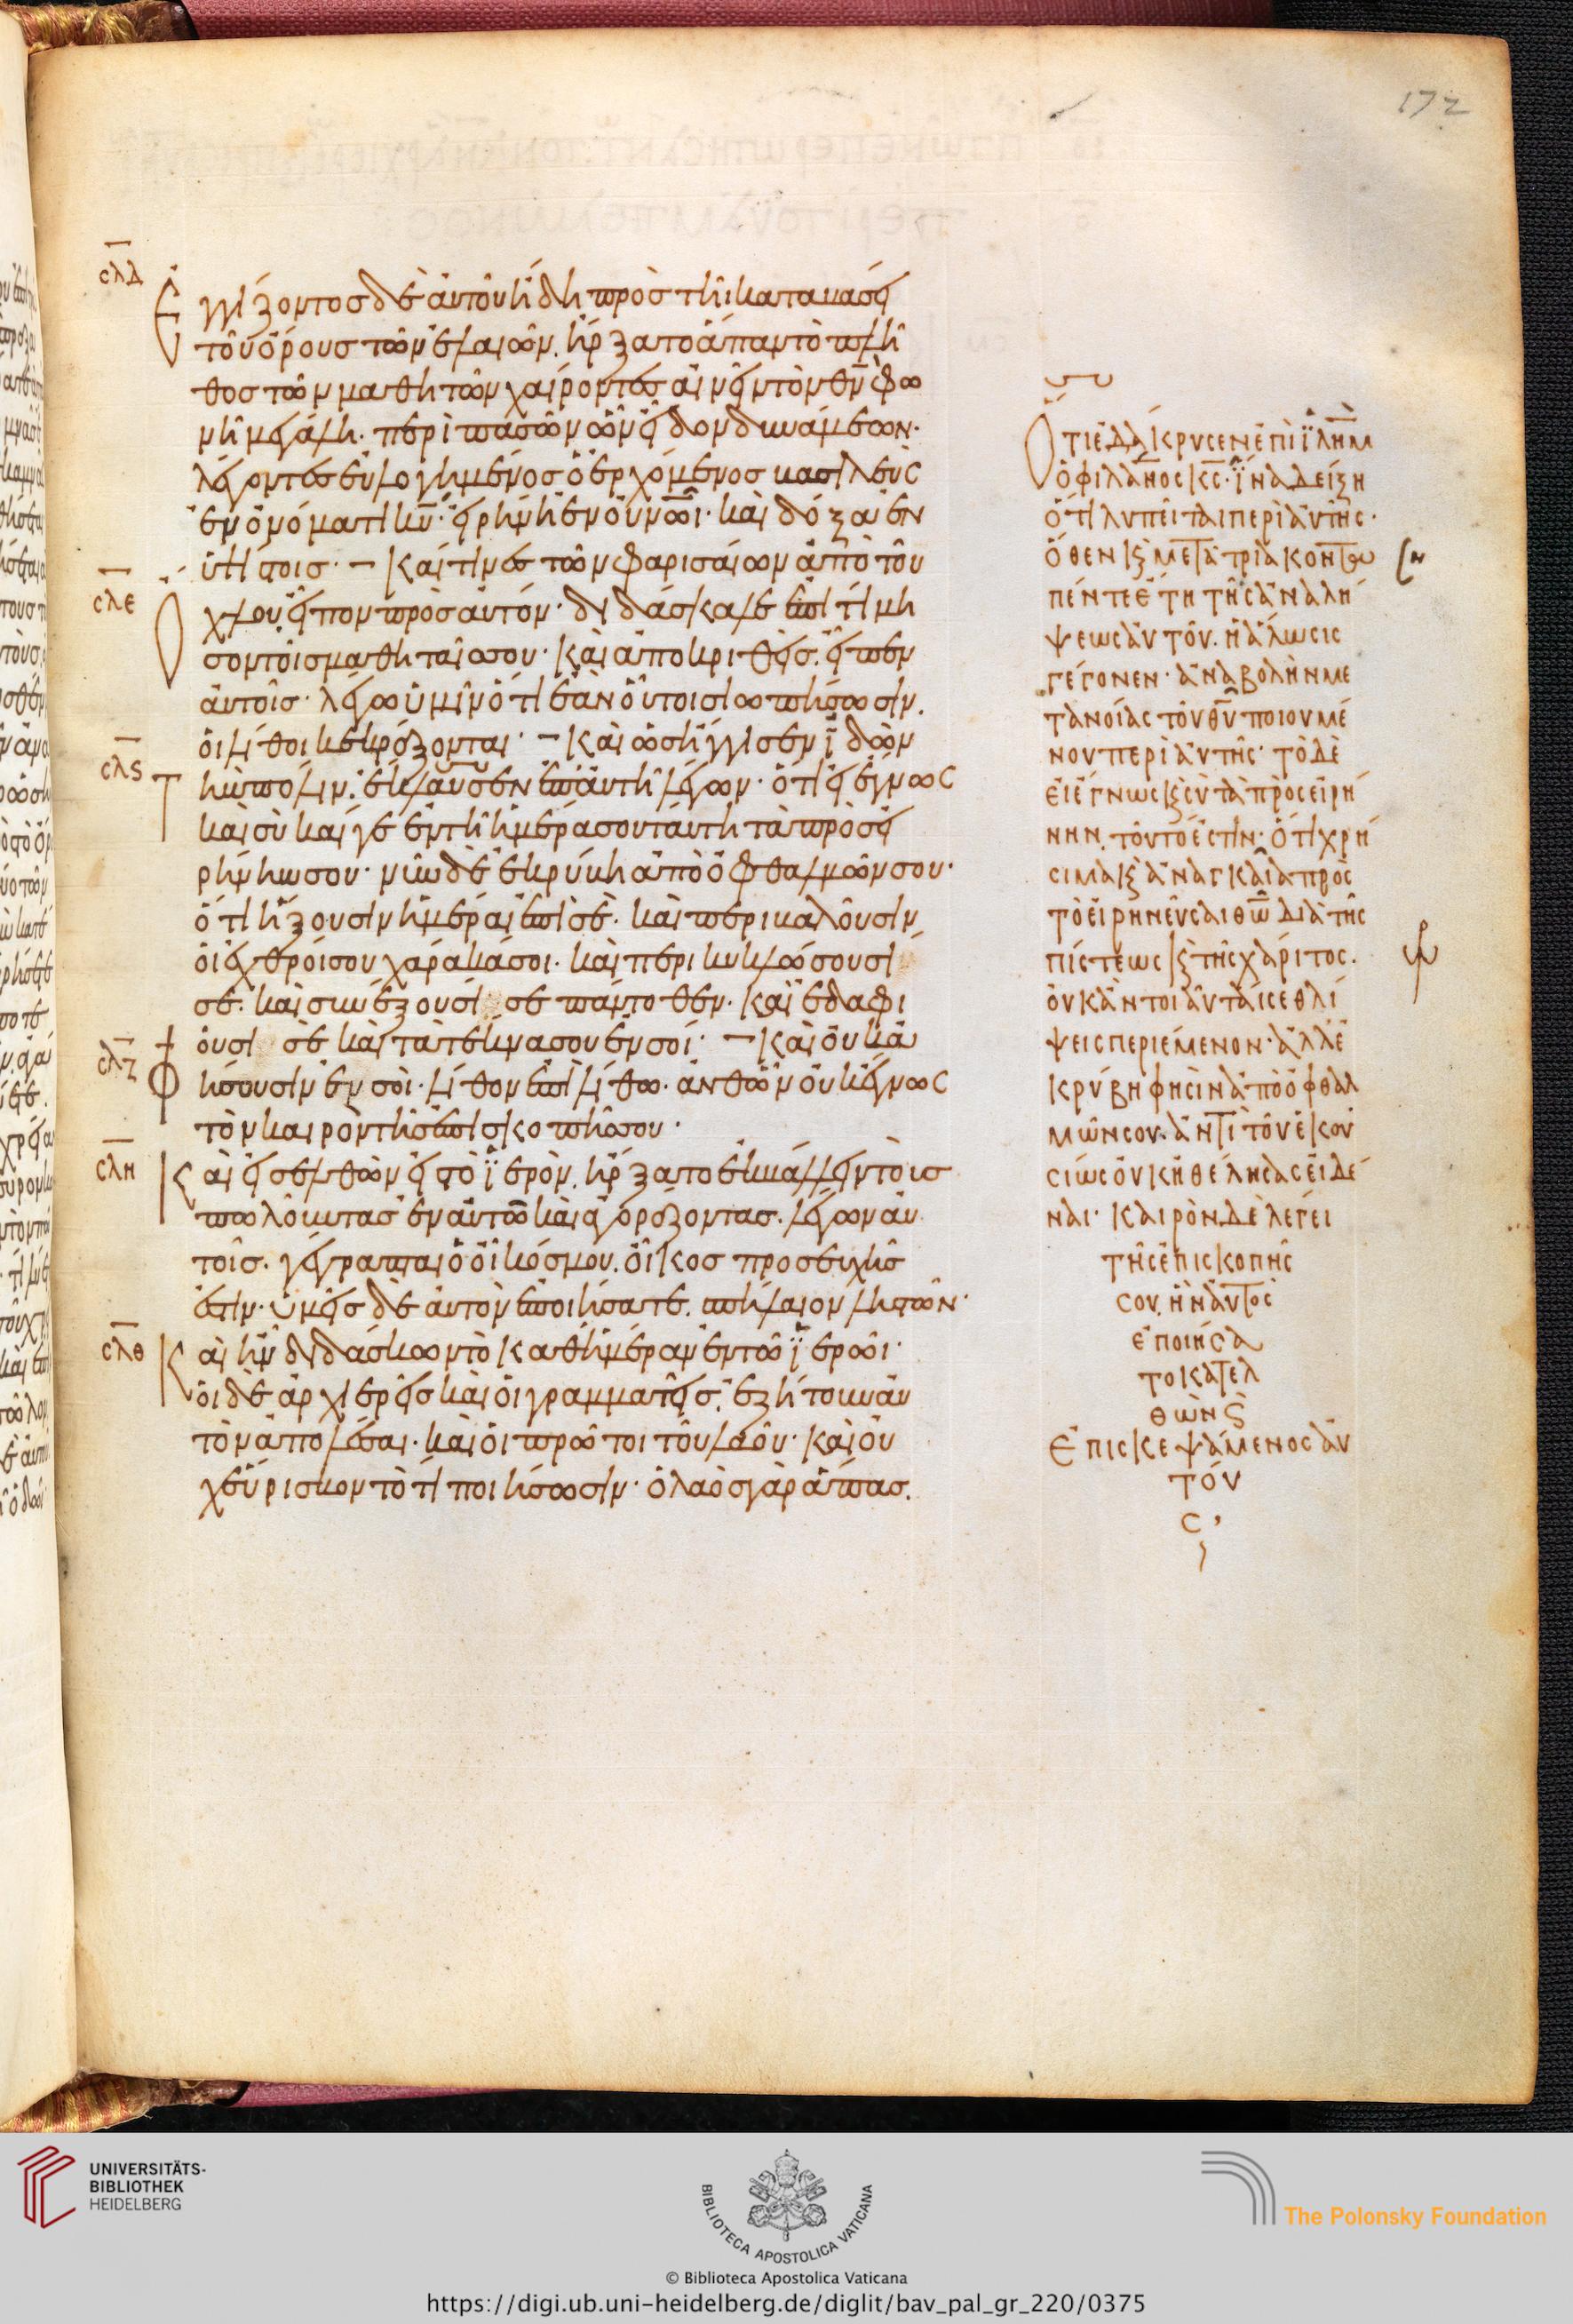 172
σλδ
Ἐγγίζοντος δὲ αὐτοῦ ἤδη πρὸς τῆι καταβάσει
τοῦ ὄρους τῶν ἐλαιῶν. ἤρξατο ἅπαν τὸ πλῆ
θος τῶν μαθητῶν χαίροντες αἰνεῖν τὸν θν̄ φω
νῆ μεγάλη. περὶ πασῶν ὧν εἶδον δυνάμεων·
λέγοντες εὐλογημένος ὁ ἐρχόμενος βασιλεὺς
ἐν ὀνόματι κῡ· εἰρήνη ἐν οὐνω̄ι· καὶ δόξα ἐν
ὑψίστοις· Καί τινες τῶν φαρισαίων ἀπὸ τοῦ
σλε
ὄχλου, εἶπον πρὸς αὐτόν· διδάσκαλε ἐπιτίμη
σον τοῖς μαθηταῖς σου· καὶ ἀποκριθεὶς. εἶπεν
αὐτοῖς· λέγω ὑμῖν ὅτι ἐὰν οὗτοι σιωπήσωσιν.
οἱ λίθοι κεκράξονται· Καὶ ὡς ἤγγισεν ἰδὼν
σλς
τὴν πόλιν. ἔκλαυσεν ἐπ' αὐτῆ λέγων· ὅτι εἰ ἔγνως
καὶ σὺ καί γε ἐν τῆ ἡμέρα σου ταύτη τὰ πρὸς εἰ
ρήνην σου· νῦν δὲ ἐκρύβη ἀπὸ ὀφθαλμῶν σου·
ὅτι ἥξουσιν ἡμέραι ἐπὶ σέ. καὶ περιβαλοῦσιν
οἱ ἐχθροί σου χάρακά σοι. καὶ περικυκλώσουσί
σε. καὶ συνέξουσί σε πάντοθεν. καὶ ἐδαφι
οῦσί σε καὶ τὰ τέκνα σου ἐν σοί· Καὶ οὐκ ἀ
σλζ
φήσουσιν ἐν σοὶ. λίθον ἐπὶ λίθω. ἀνθ' ὧν οὐκ ἔγνως
τὸν καιρὸν τῆς ἐπισκοπῆς σου·
σλη
Καὶ εἰσελθὼν εἰς τὸ ἱερὸν. ἤρξατο ἐκβάλλειν τοὺς
πωλοῦντας ἐν αὐτῶ καὶ ἀγοράζοντας. λέγων αὐ
τοῖς. γέγραπται ὁ οἶκός μου. οἶκος προσευχῆς
ἐστιν. ὑμεῖς δὲ αὐτὸν ἐποιήσατε. σπήλαιον ληστῶν·
σλθ
Καὶ ἦν διδάσκων τὸ καθ' ἡμέραν ἐν τῶ ἱερῶι·
οἱ δὲ ἀρχιερεῖς καὶ οἱ γραμματεῖς. ἐζήτουν αὐ
τὸν ἀπολέσαι. καὶ οἱ πρῶτοι τοῦ λαοῦ· καὶ οὐ
χ εὕρισκον τὸ τί ποιήσωσιν· ὁ λαὸς γὰρ ἅπας.
Ὅτι ἐδάκρυσεν ἐπὶ ϊλη̄μ
ὁ φιλαν̄ος κς̄. ἵνα δείξη
ὅτι λυπεῖται περὶ αὐτῆς·
ὅθεν κ̀ μετὰ τριακονταω
πέντε ἔτη τῆς ἀναλή
ψεως αὐτοῦ. ἡ ἅλωσις
γέγονεν· ἀναβολὴν με
τανοίας τοῦ θῡ ποιουμέ
νου περὶ αὐτῆς· τὸ δὲ
εἰ ἔγνως κ̀ σὺ τὰ πρὸς εἰρή
νην. τουτοέστιν· ὅτι χρή
σιμα κ̀ ἀναγκαῖα πρὸς
τὸ εἰρηνεῦσαι θω̄ διὰ τῆς
πίστεως κ̀ τῆς χάριτος.
οὐκ ἂν τοιαῦται σε θλί
ψεις περιέμενον· ἀλλ' ἐ
κρύβη φησὶν ἀπὸ ὀφθαλ
μῶν σου. ἀντὶ τοῦ ἑκου
σίως οὐκ ἠθέλησας εἰδέ
ναι· καιρὸν δὲ λέγει
τῆς ἐπισκοπῆς
σου. ἣν αὐτὸς
ἐποιήσα
το κατελ
θὼν κ̀
ἐπισκεψάμενος αὐ
τόν
UNIVERSITÄTS-
BIBLIOTHEK
HEIDELBERG
BIBLIOTECA APOSTOLICA VATICANA
The Polonsky Foundation
© Biblioteca Apostolica Vaticana
https://digi.ub.uni-heidelberg.de/diglit/bav_pal_gr_220/0375